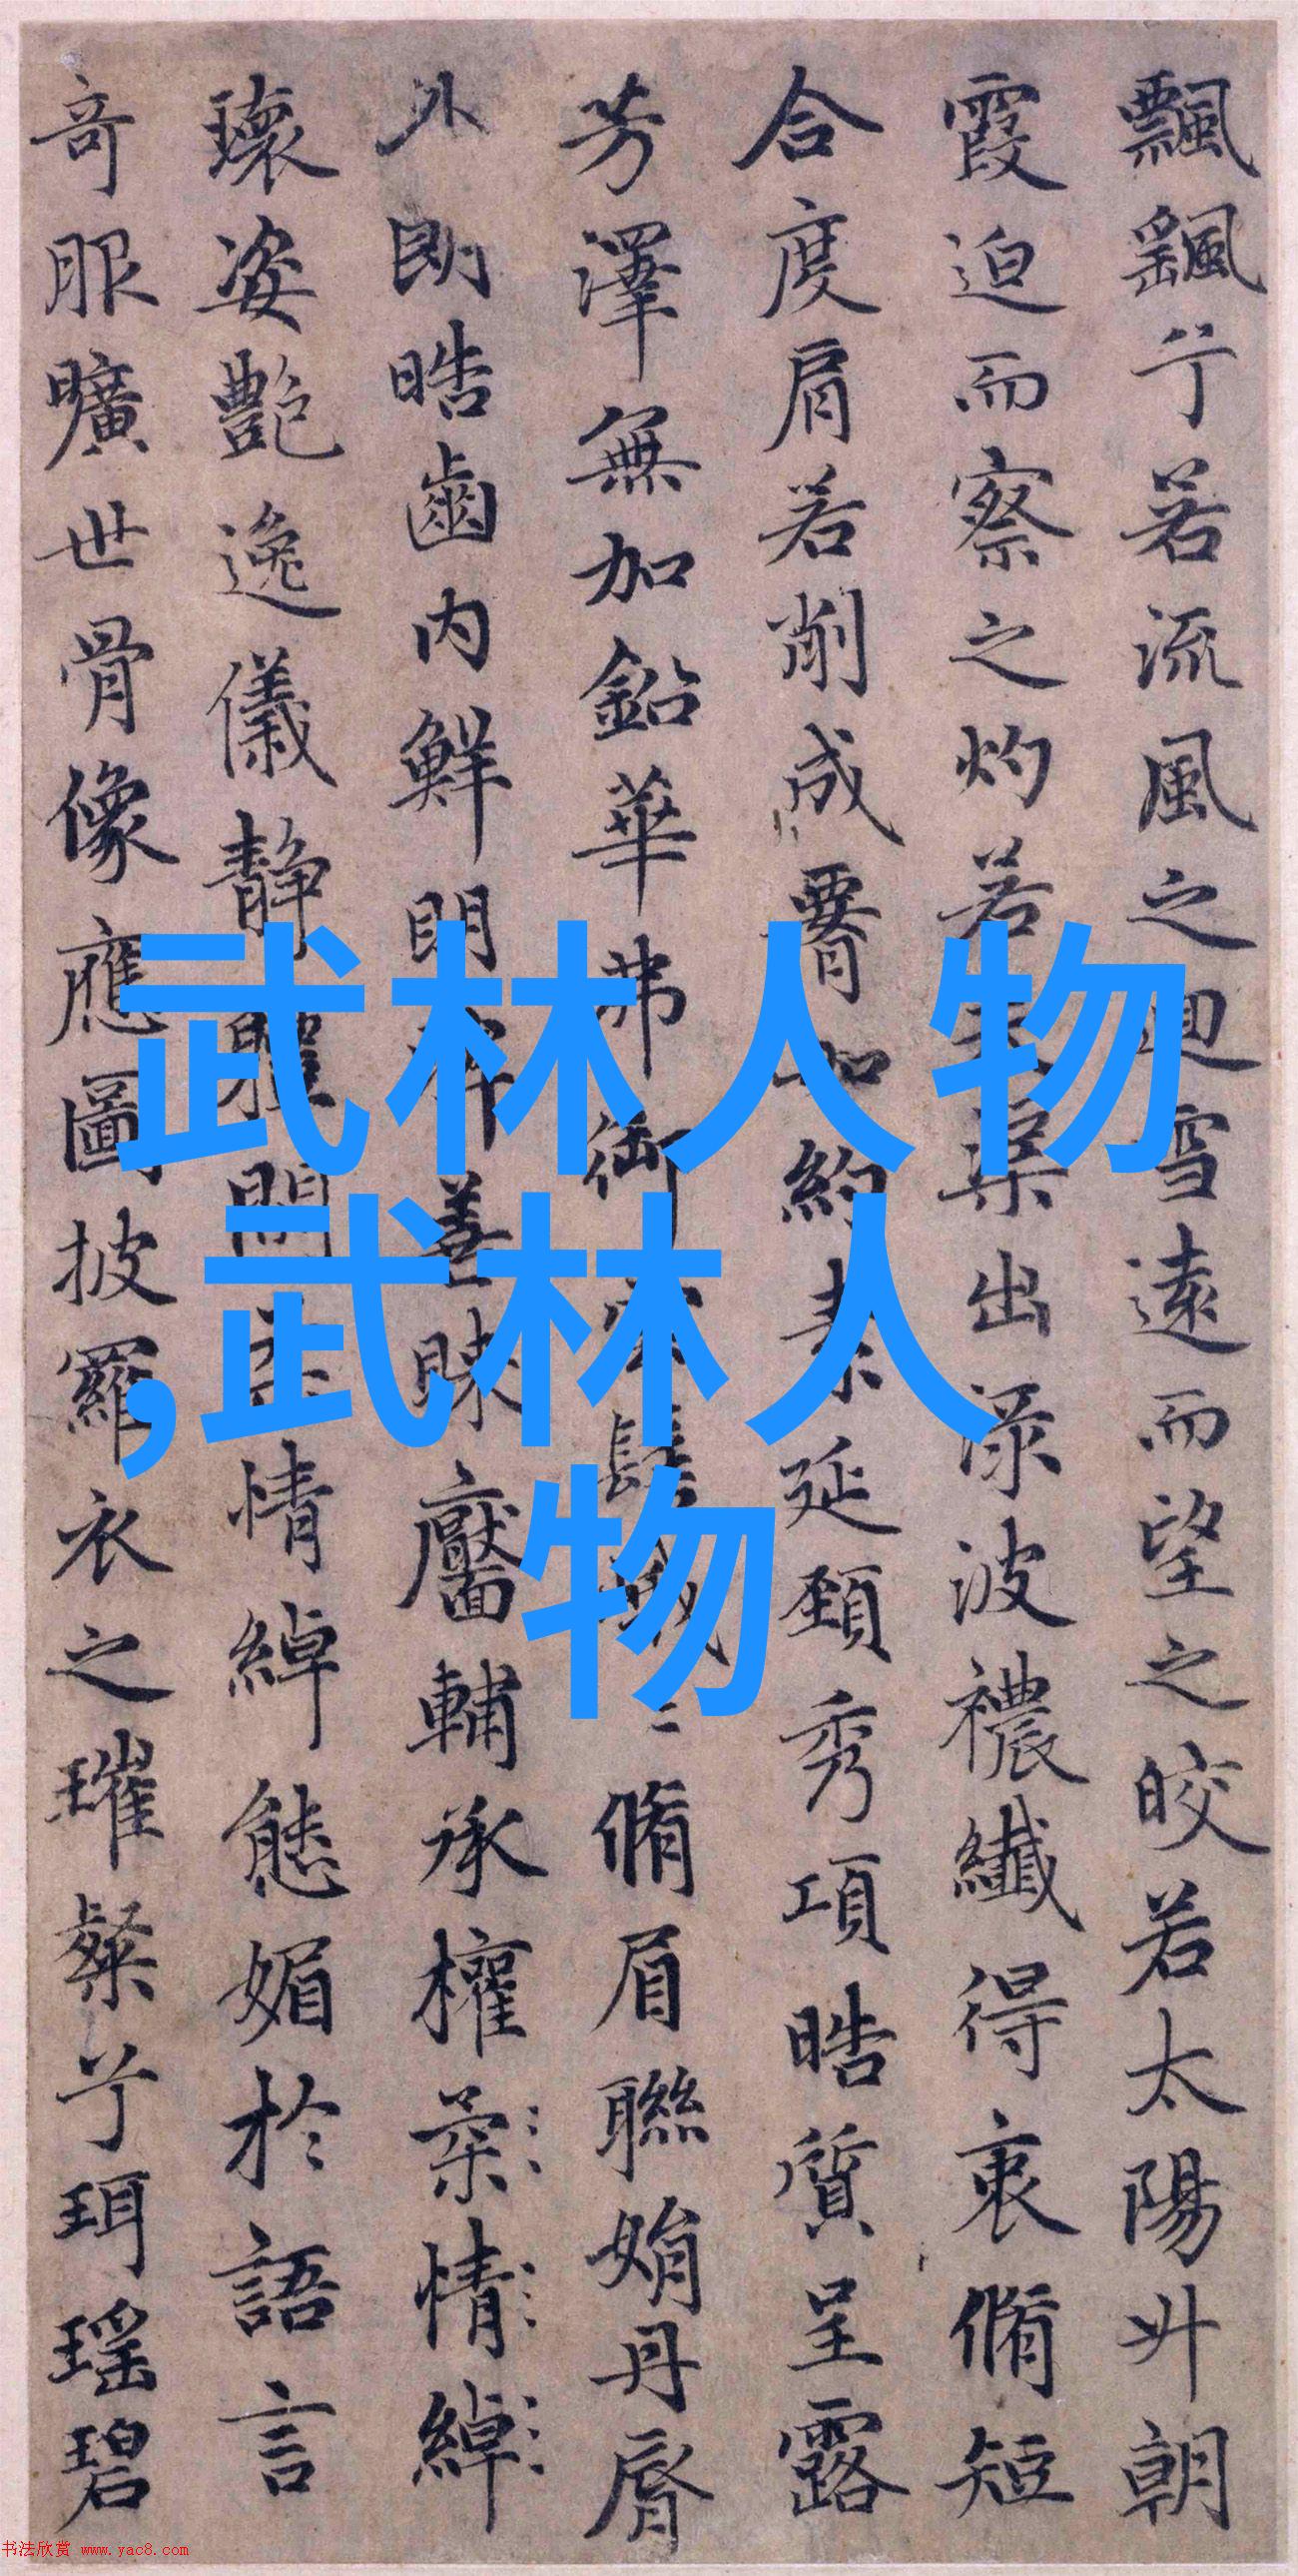 飄飖兮若流風之迴雪遠而望之皎若太陽升朝
霞迫而察之灼若渠出淥波禯纖得衷脩短
合度肩若削成署如約素延頸秀項皓質呈露
芳澤無加鉛華弗御脩眉聯娟丹脣
外朗皓齒内鮮明善睞靨輔承權柔情綽
瓌姿艷逸儀静體閑情綽態媚於語言
奇服曠世骨像應圖披羅衣之璀粲兮珥瑶碧
武林人物
,武林人
物
书法欣赏 www.yac8.com